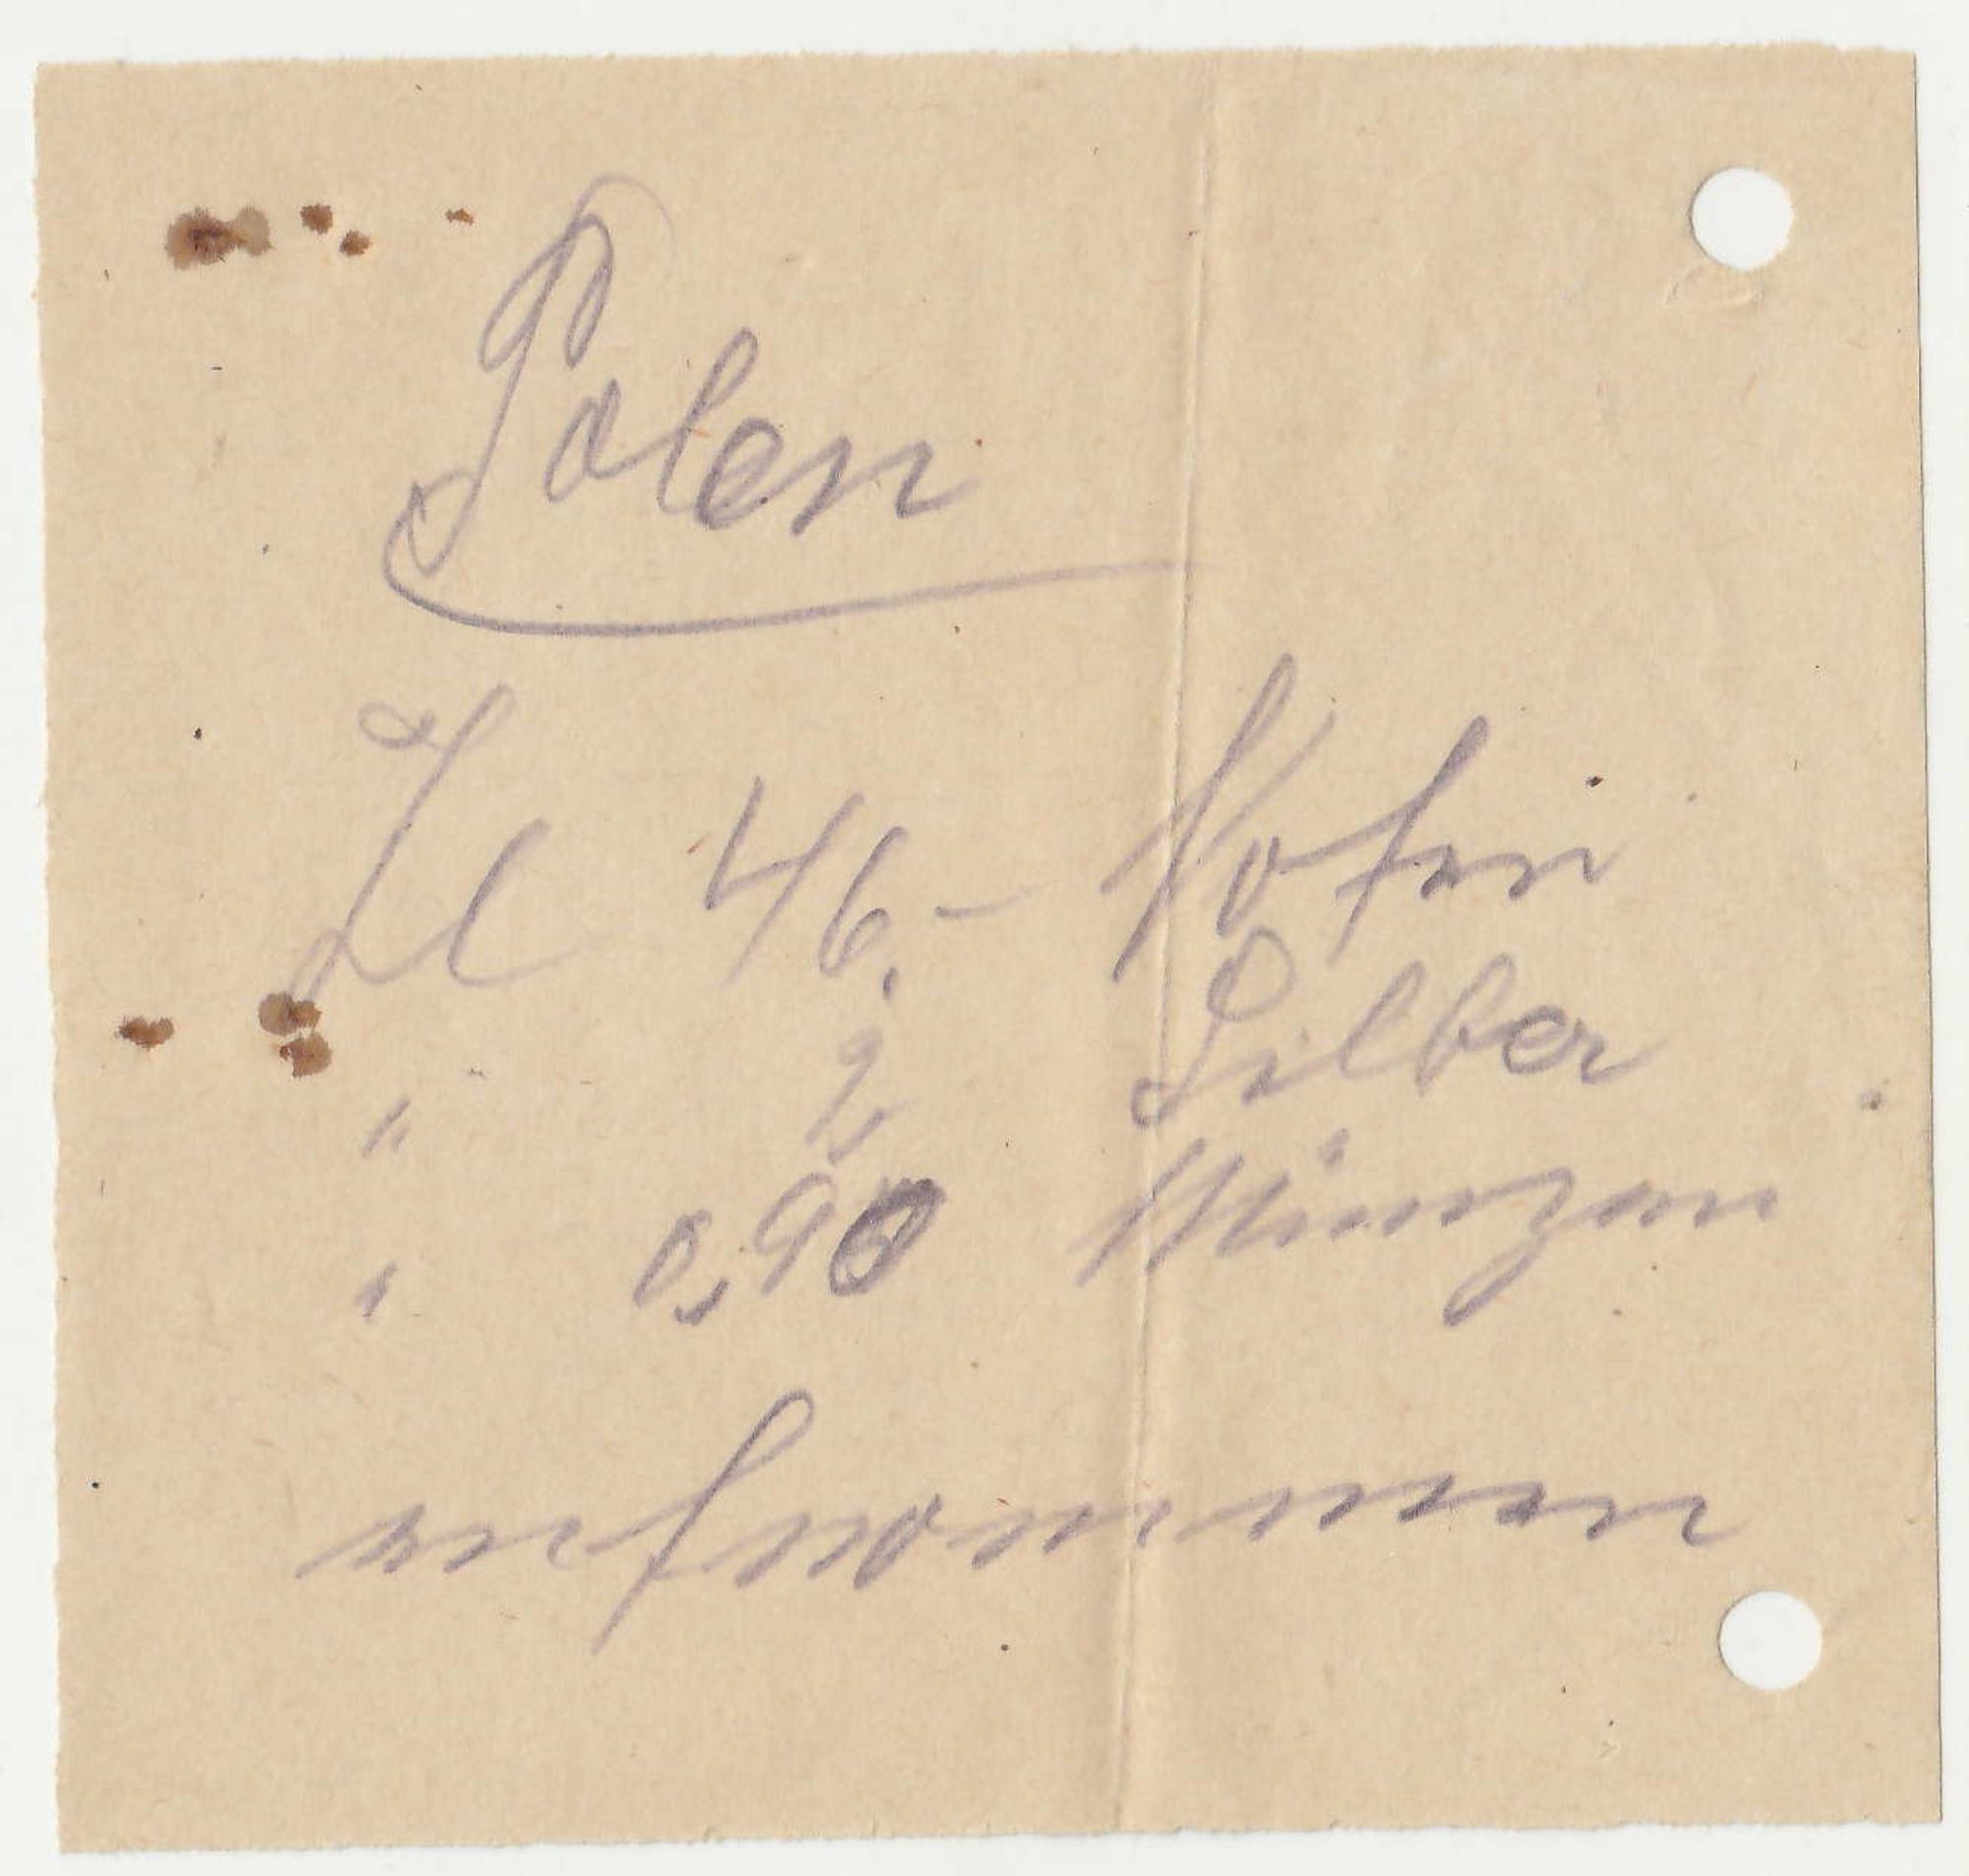 Polen
Zl 46.- Noten
" 2 Silber
" 0,90 Münzen
entnommen